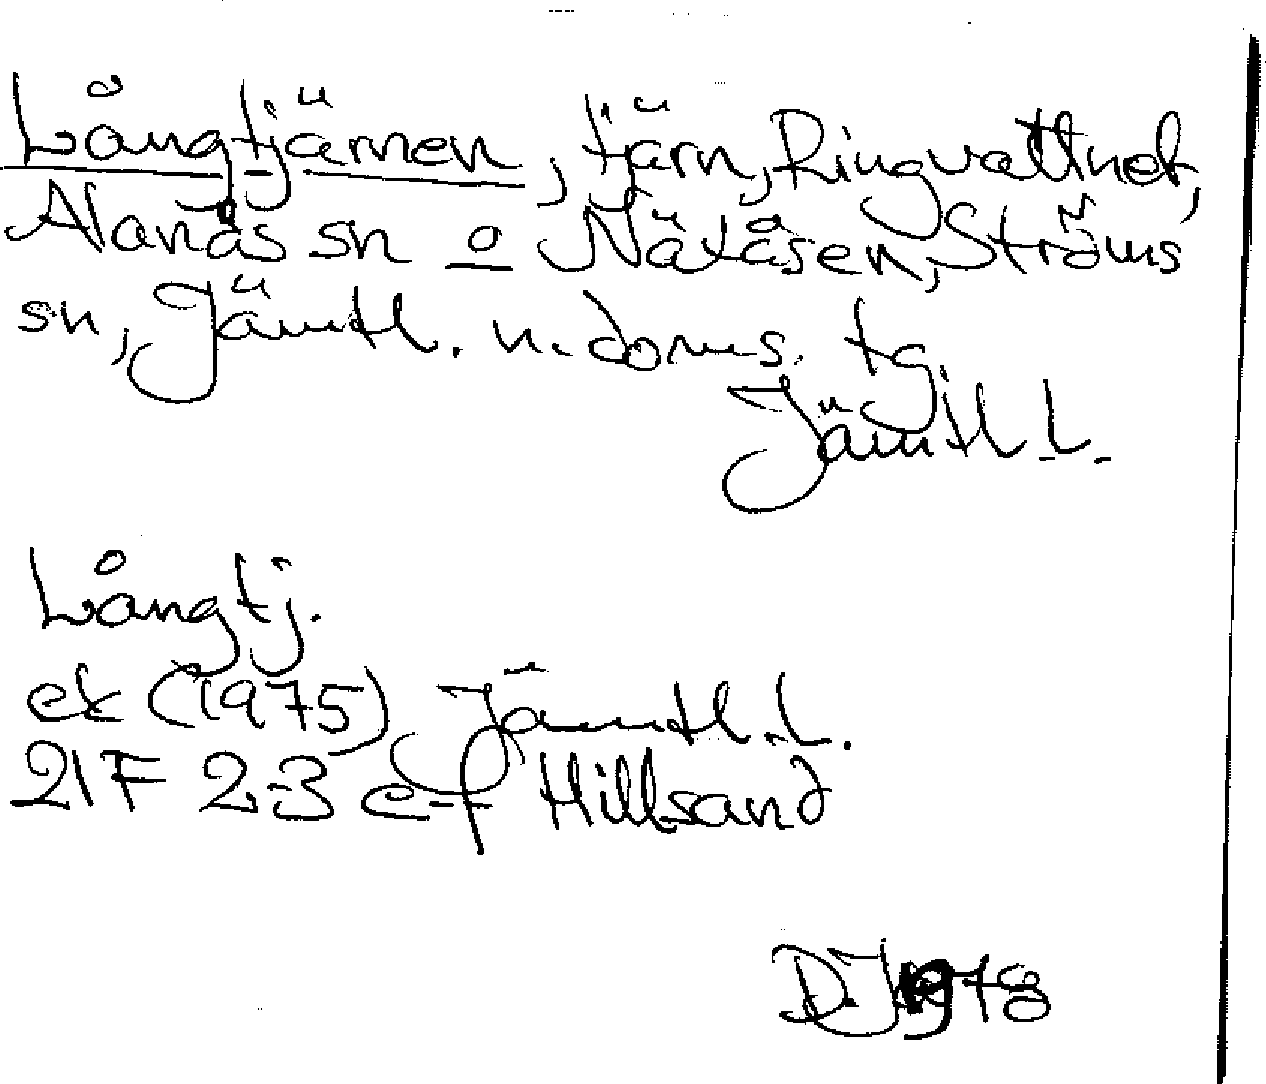 Långtjärnen, tjärn, Ringvattnet,
Alanäs sn o Nätåsen, Ströms
sn, Jämtl. n. doms. tg
Jämtl L.
Långtj.
ek (1975) Jämtl. L.
21F 2-3 e-f Hillsand
D.J 1978